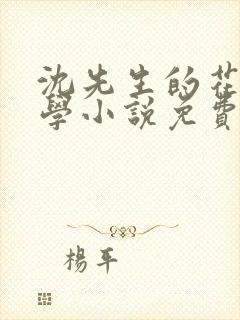 沈先生的花
學小說免費
楊平